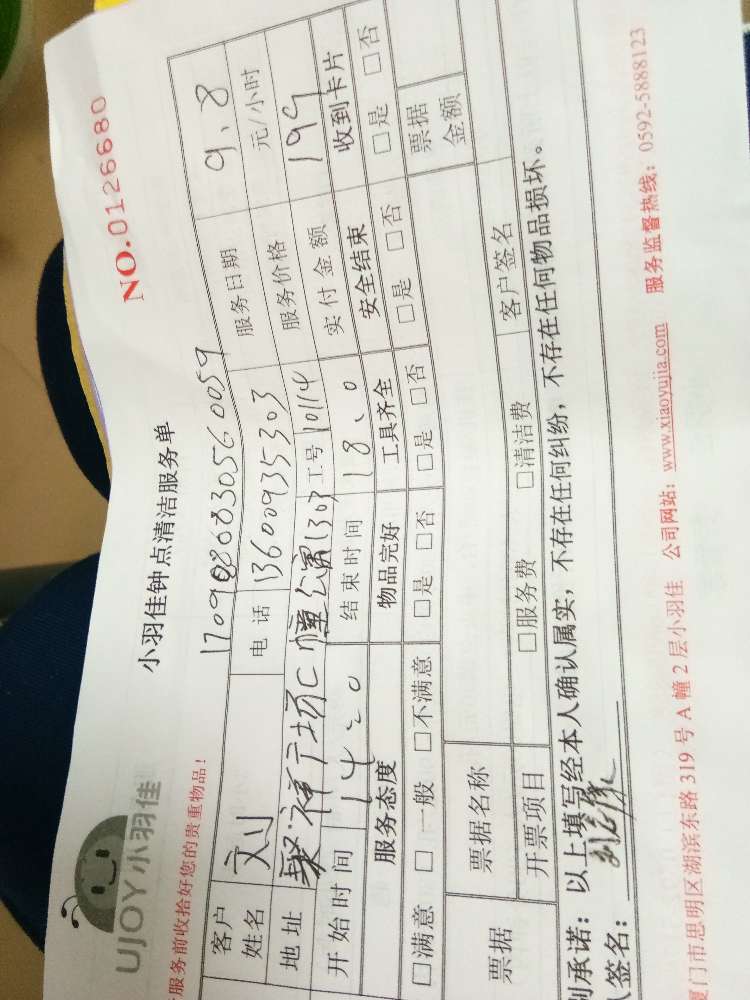 NO.0126680
UJOY小羽佳
小羽佳钟点清洁服务单
服务前收拾好您的贵重物品！
170908683056 0059
客户姓名 刘 电话 13600935303 服务日期 9.8
地址 聚祥广场C幢公寓1303 工号 10114 服务价格 元/小时
开始时间 14:20 结束时间 18:20 实付金额 199
服务态度 物品完好 工具齐全 安全结束 收到卡片
□满意 □一般 □不满意 □是 □否 □是 □否 □是 □否 □是 □否
票据 票据名称 票据金额
开票项目 □服务费 □清洁费 客户签名
承诺：以上填写经本人确认属实，不存在任何纠纷，不存在任何物品损坏。
签名：
厦门市思明区湖滨东路319号A幢2层小羽佳 公司网站：www.xiaoyujia.com 服务监督热线：0592-5888123